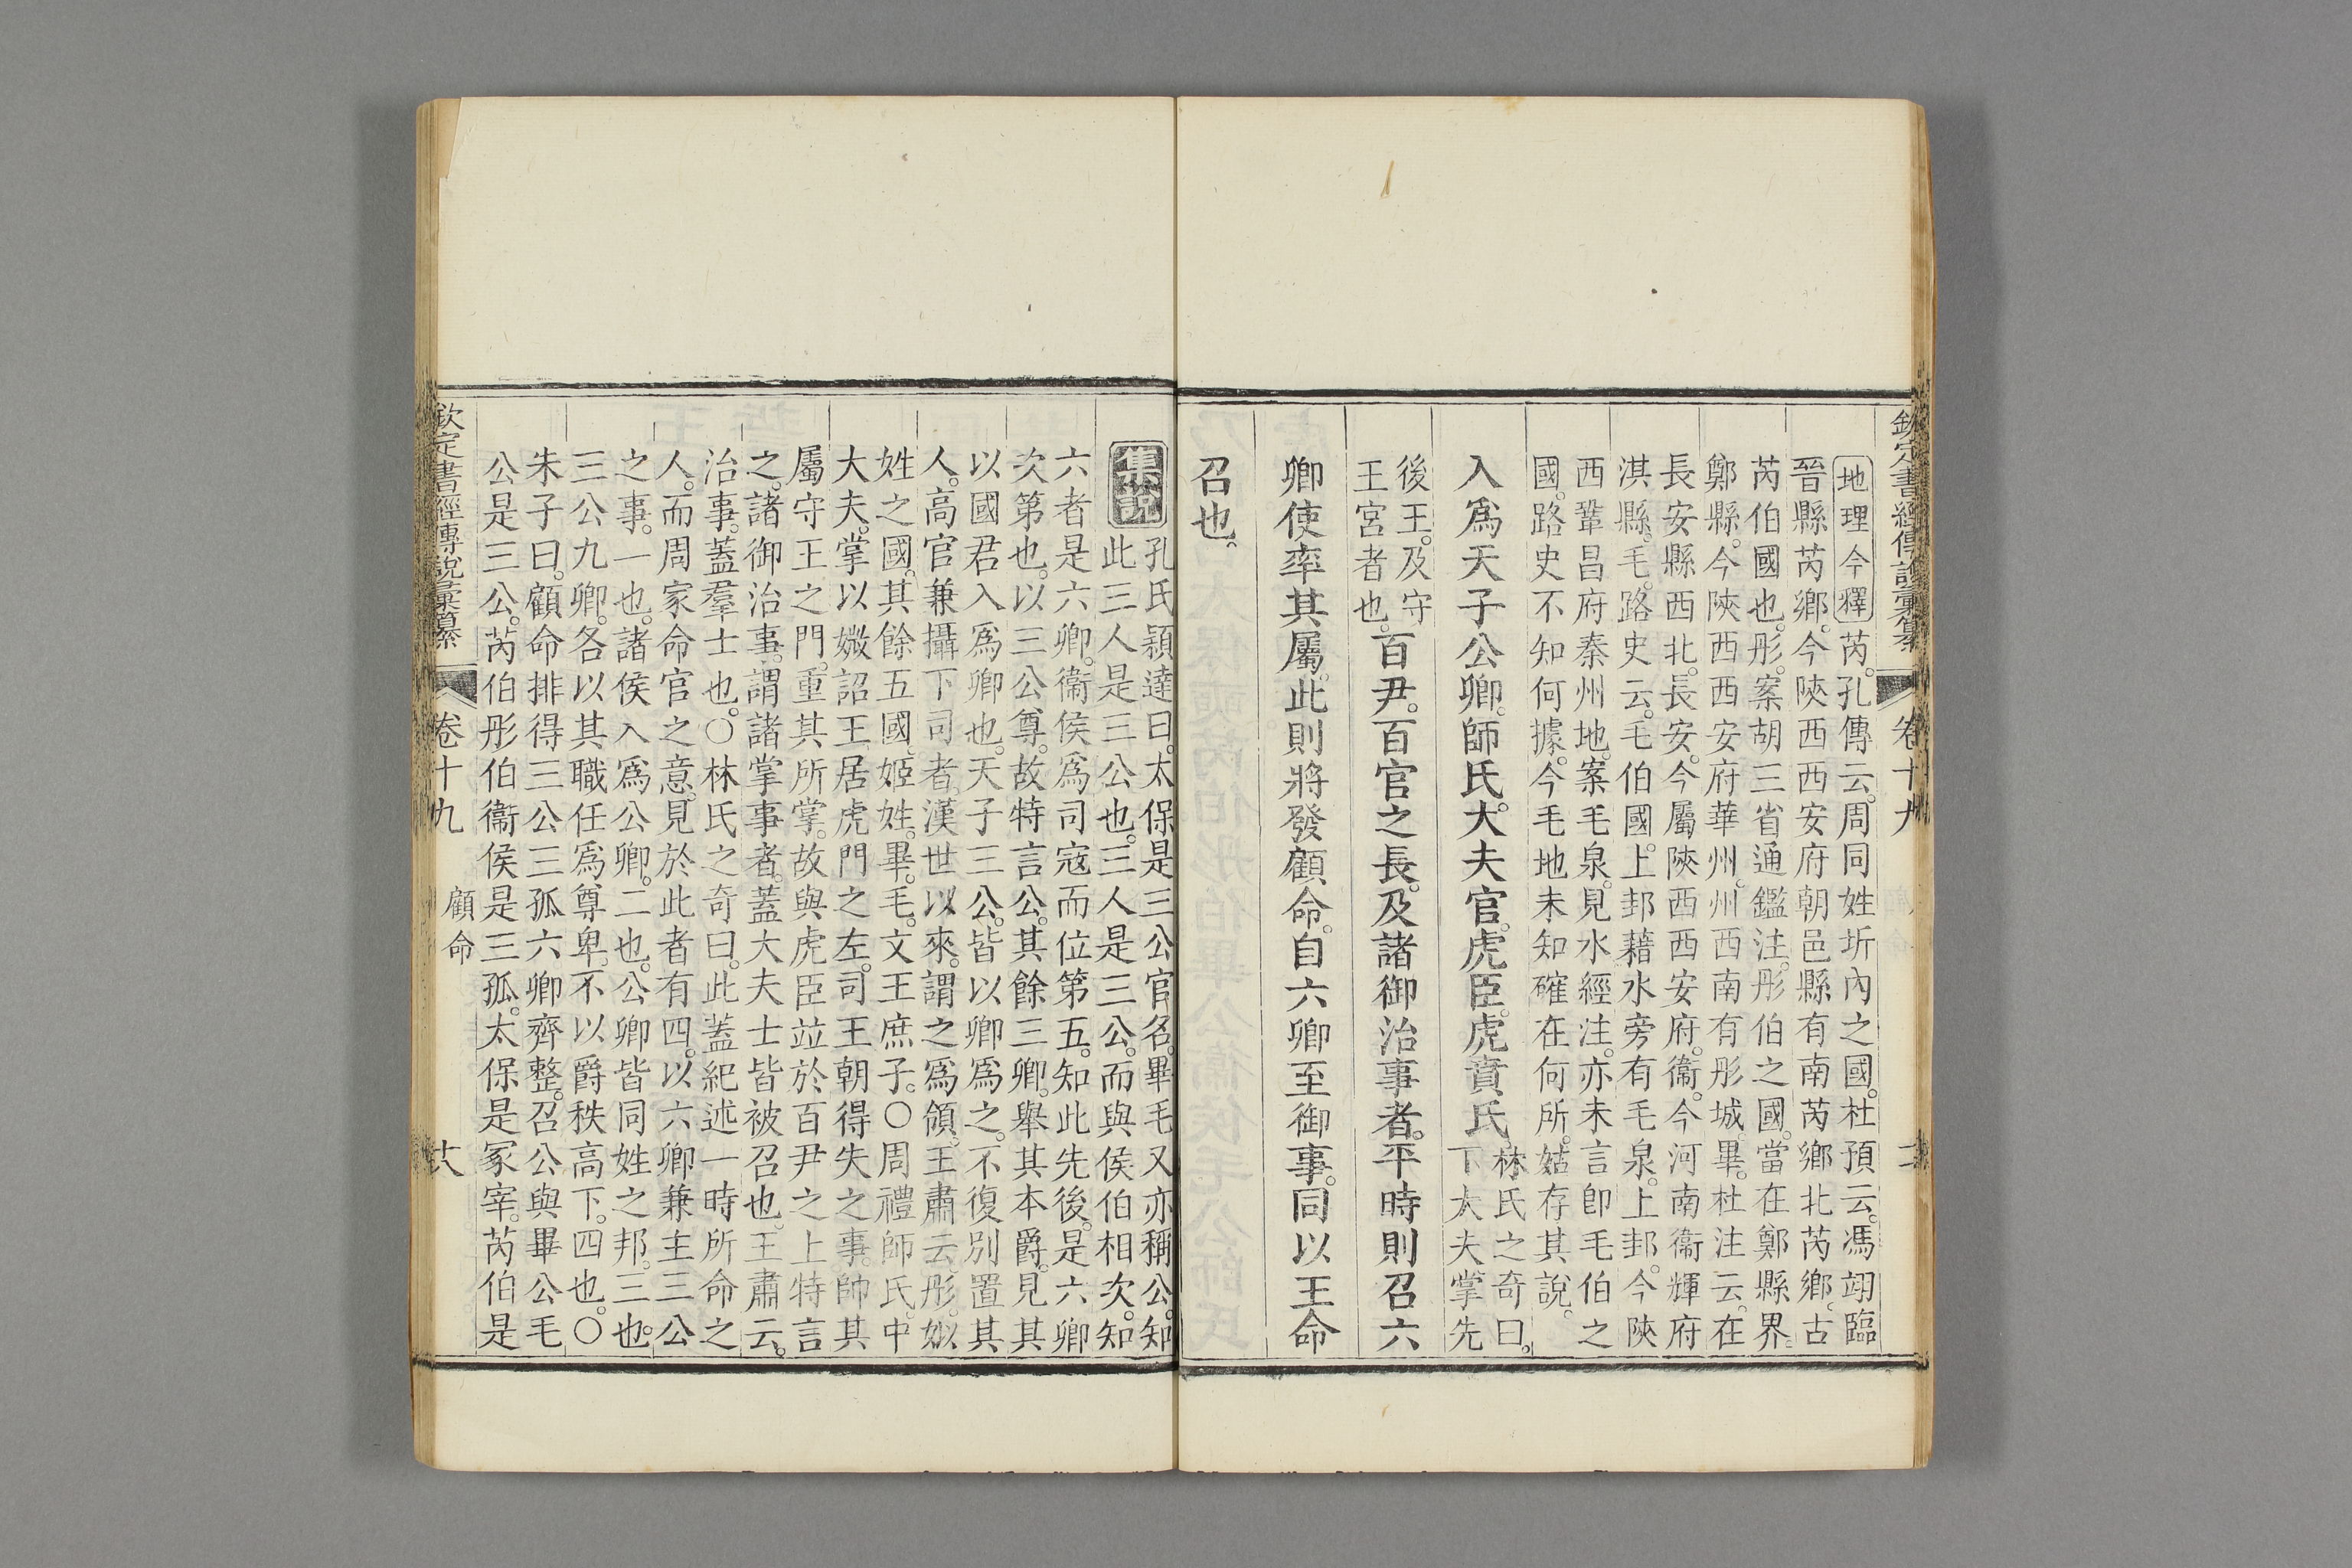 欽定書經傳說彙纂 卷十九
地理今釋 芮。孔傳云。周同姓圻內之國。杜預云。馮翊臨
晉縣芮鄉。今陝西西安府朝邑縣有南芮鄉北芮鄉。古
芮伯國也。彤。案胡三省通鑑注。彤伯之國。當在鄭縣界
鄭縣。今陝西西安府華州。州西南有彤城。畢。杜注云。在
長安縣西北。長安。今屬陝西西安府。衞。今河南衞輝府
淇縣。毛。路史云。毛伯國。上邽藉水旁有毛泉。上邽。今陝
西鞏昌府秦州地。案毛泉。見水經注。亦未言卽毛伯之
國。路史不知何據。今毛地未知確在何所。姑存其說。
入爲天子公卿。師氏。大夫官。虎臣。虎賁氏。林氏之奇曰。
下大夫掌先
後王。及守
王宮者也。百尹。百官之長。及諸御治事者。平時則召六
卿使率其屬。此則將發顧命。自六卿至御事。同以王命
召也。
集說 孔氏穎達曰。太保是三公官名。畢毛又亦稱公。知
此三人是三公也。三人是三公。而與侯伯相次。知
六者是六卿。衞侯爲司寇而位第五。知此先後。是六卿
次第也。以三公尊。故特言公。其餘三卿。舉其本爵。見其
以國君入爲卿也。天子三公。皆以卿爲之。不復別置其
人。高官兼攝下司者。漢世以來。謂之爲領。王肅云。彤。姒
姓之國。其餘五國。姬姓。畢。毛。文王庶子。○周禮師氏。中
大夫。掌以媺詔王。居虎門之左。司王朝得失之事。帥其
屬守王之門。重其所掌。故與虎臣竝於百尹之上特言
之。諸御治事。謂諸掌事者。蓋大夫士皆被召也。王肅云。
治事。蓋羣士也。○林氏之奇曰。此蓋紀述一時所命之
人。而周家命官之意。見於此者有四。以六卿兼主三公
之事。一也。諸侯入爲公卿。二也。公卿皆同姓之邦。三也。
三公九卿。各以其職任爲尊卑。不以爵秩高下。四也。○
朱子曰。顧命排得三公三孤六卿齊整。召公與畢公毛
公是三公。芮伯彤伯衞侯是三孤。太保是冢宰。芮伯是
欽定書經傳說彙纂 卷十九 顧命